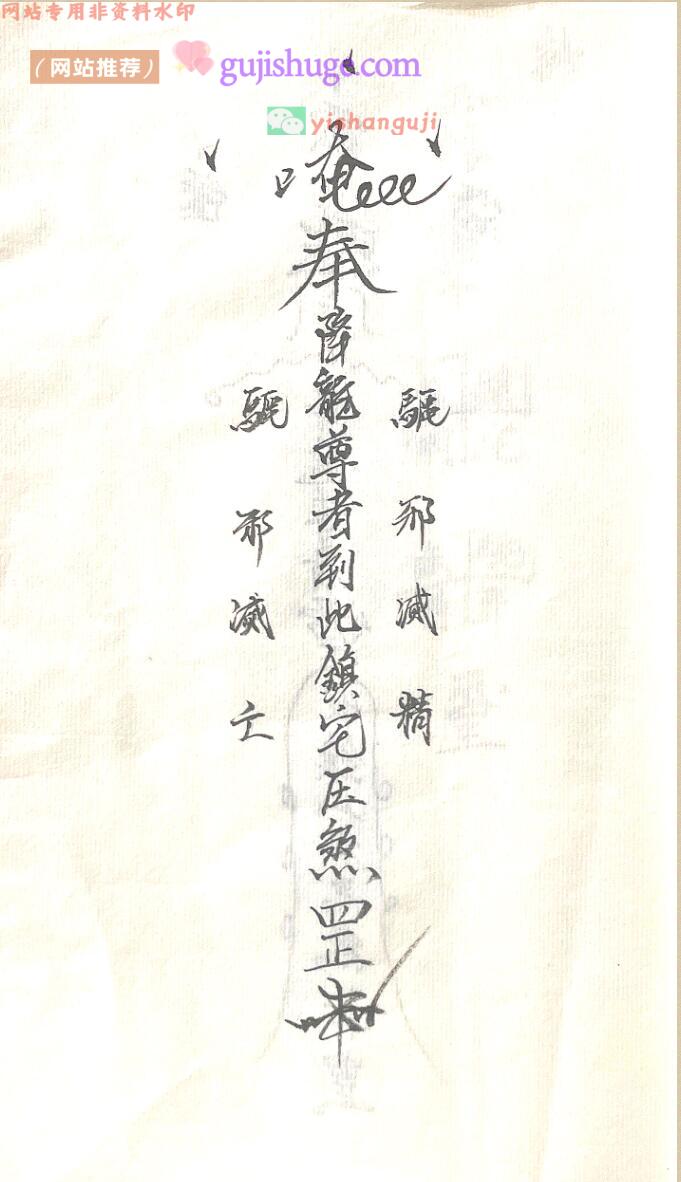 网站专用非资料水印
(网站推荐) gujishuge.com
yishanguji
唵奉降龍尊者到此鎮宅压煞罡
驅邪滅精
驅邪滅亡